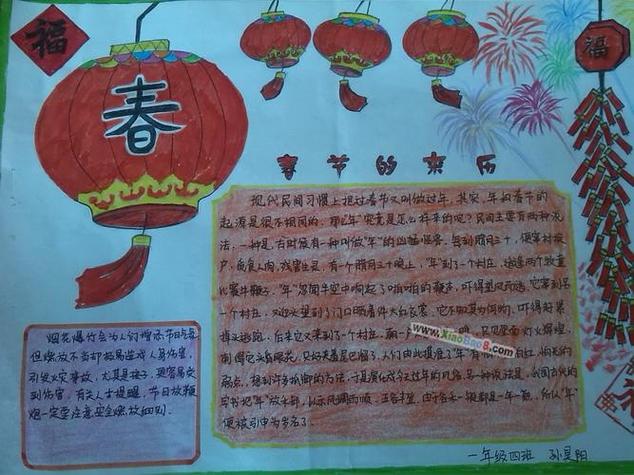 福
春
福
春节的来历
现代民间习惯上把过春节又叫做过年。其实，年和春节的
起源是很不相同的。那么"年"究竟是怎么样来的呢？民间主要有两种说
法：一种是，古时候有一种叫做"年"的凶猛怪兽，每到腊月三十，便窜村挨
户，觅食人肉，残害生灵。有一个腊月三十晚上，"年"到了一个村庄，适逢两个牧童
比赛牛鞭子。"年"忽闻半空中响起了啪啪的鞭声，吓得望风而逃。它窜到另
一个村庄，又迎头望到了门口晒着件大红衣裳，它不知其为何物，吓得赶紧
掉头逃跑。后来它又来到了一个村庄，朝一 只见里面灯火辉煌，
刺得它头昏眼花，只好夹着尾巴溜了。人们由此摸准了"年"有 怕光的
弱点，想到许多抵御的方法，于是演化成今天过年的风俗。另一种说法是，我国古代的
字书把"年"放禾部，以示风调雨顺，五谷丰登。由于谷禾一般都是一年一熟，所以"年"
便被引申为岁名了。
www.XiaoBao8.com
烟花爆竹会为人们增添节日气
但燃放不当却极易造成人身伤害，
引发火灾事故，尤其是孩子，更容易受
到伤害。有关人士提醒，节日放鞭
炮一定要注意安全燃放细则。
一年级四班 孙昊阳